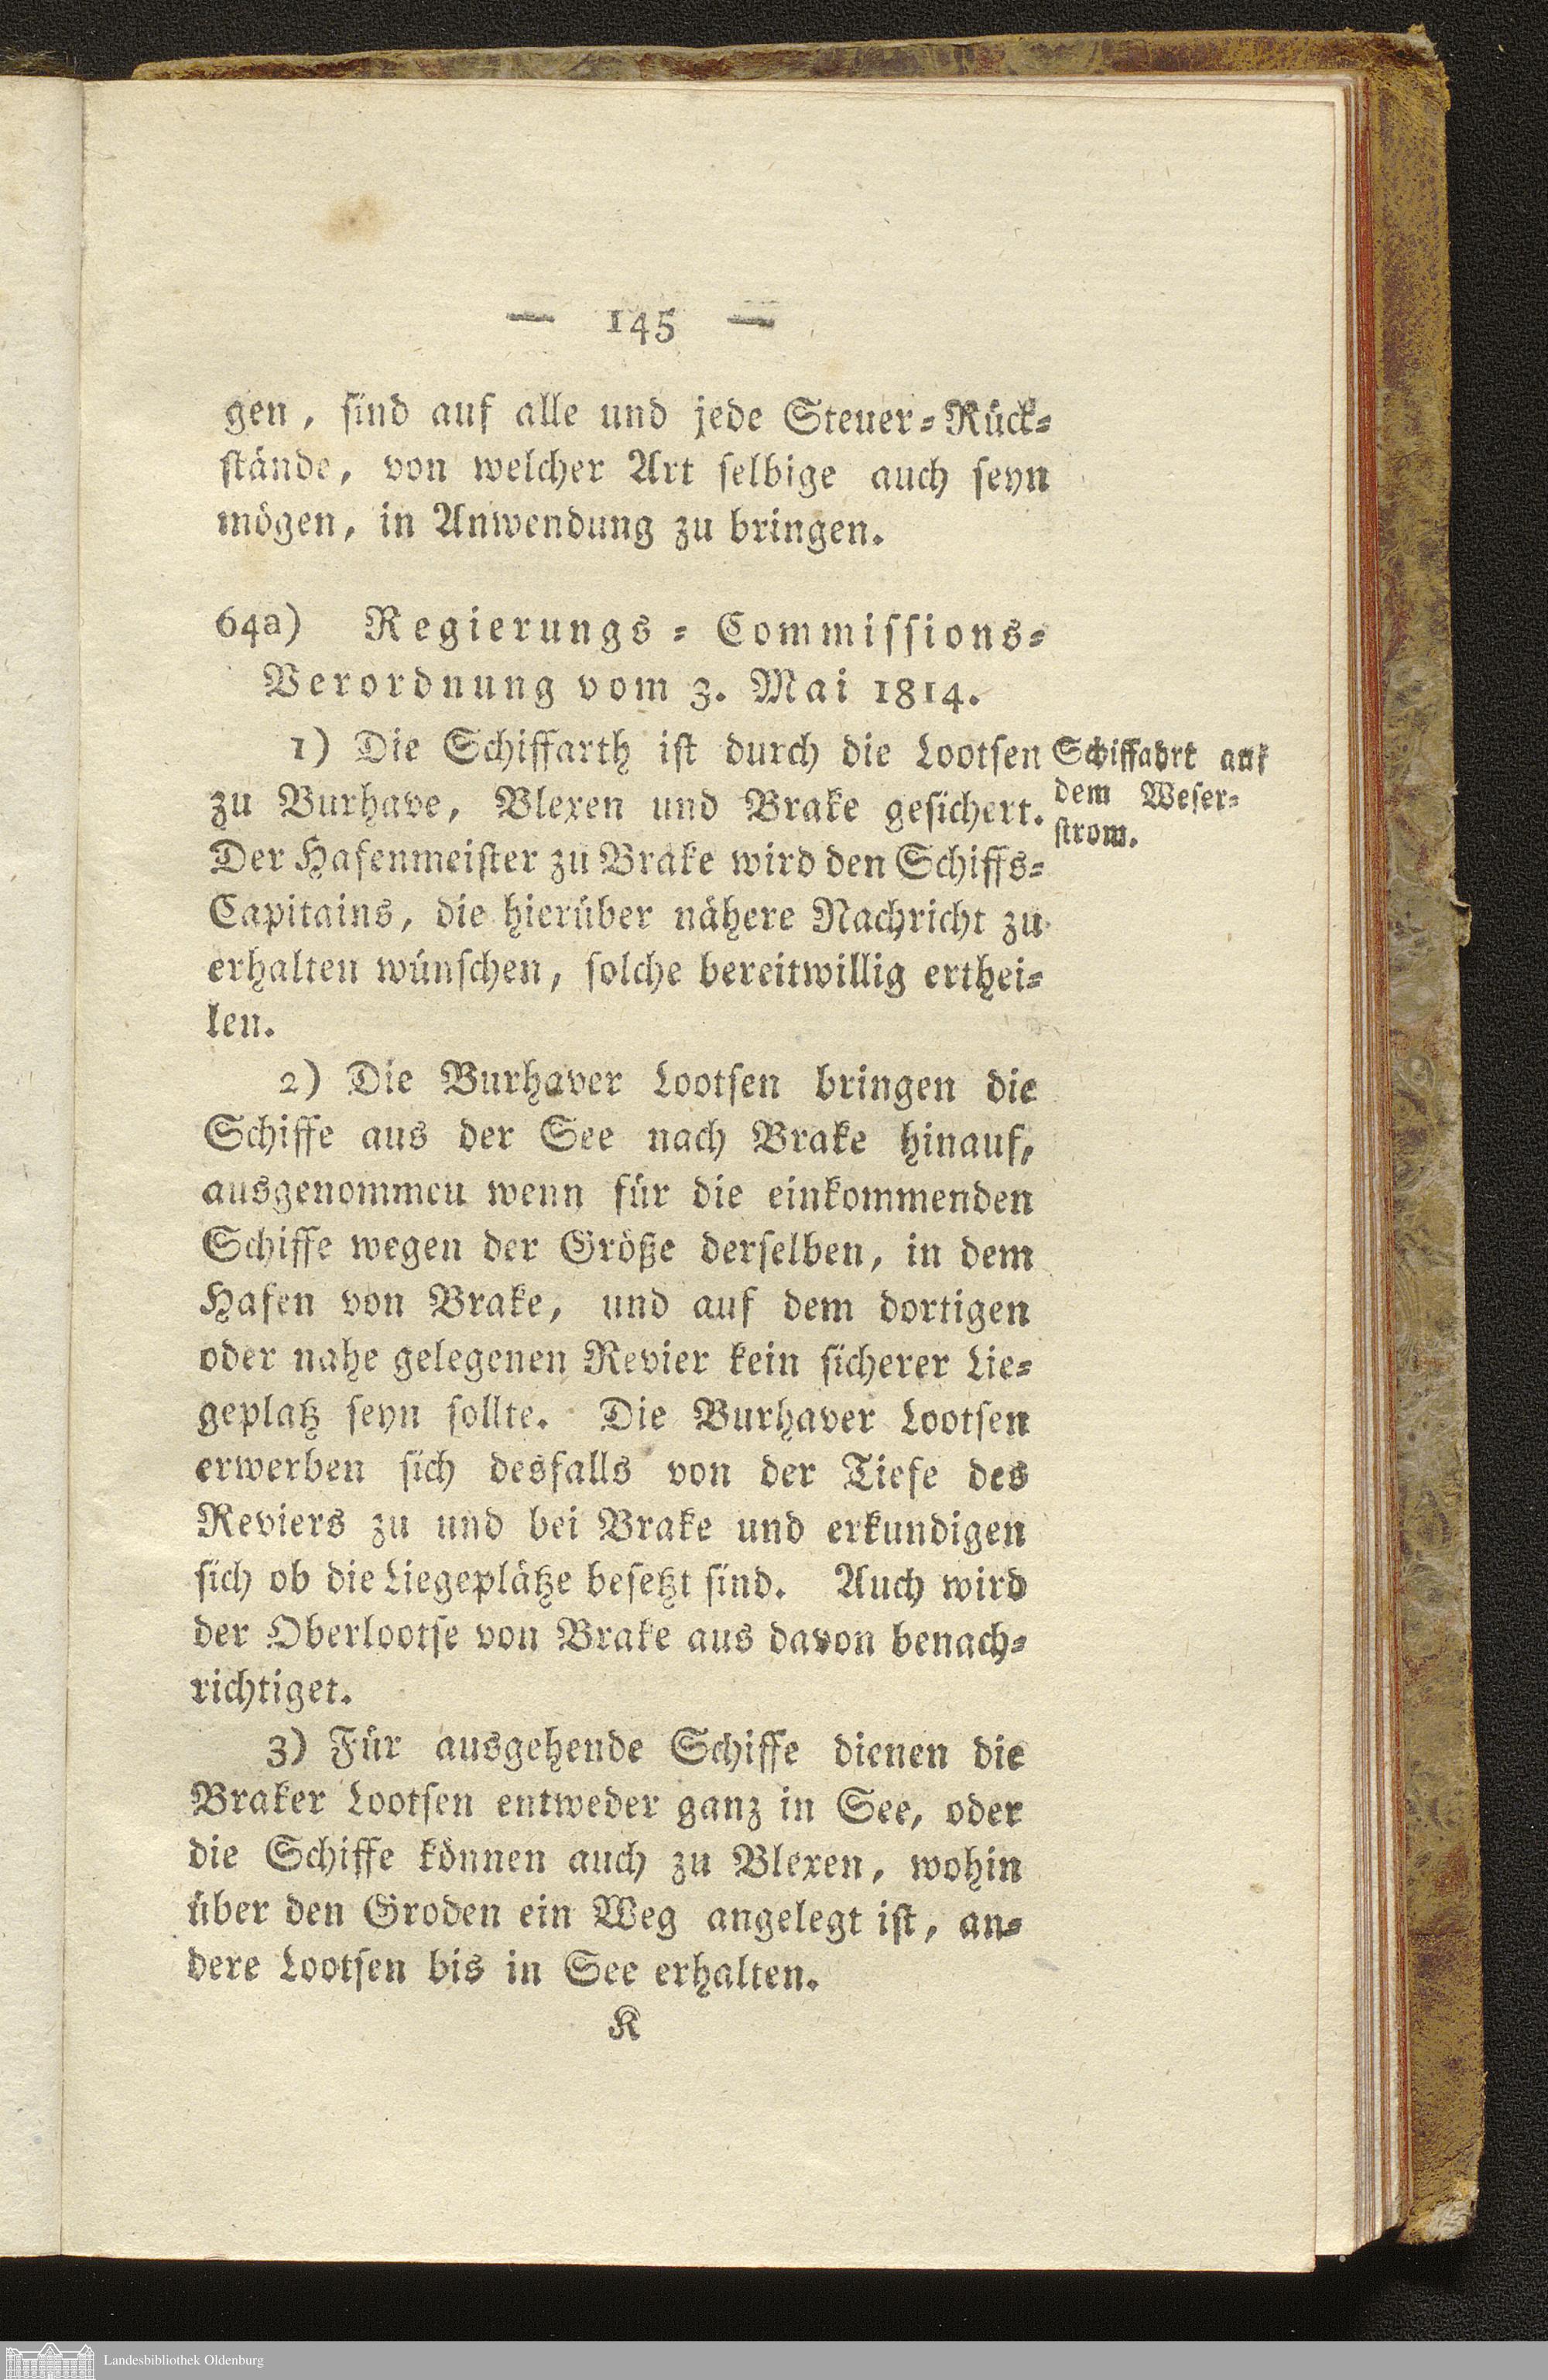 — 145 —
gen, sind auf alle und jede Steuer-Rück-
stände, von welcher Art selbige auch seyn
mögen, in Anwendung zu bringen.
64a) Regierungs-Commissions-
Verordnung vom 3. Mai 1814.
1) Die Schiffarth ist durch die Lootsen
zu Burhave, Blexen und Brake gesichert.
Der Hafenmeister zu Brake wird den Schiffs-
Capitains, die hierüber nähere Nachricht zu
erhalten wünschen, solche bereitwillig erthei-
len.
Schiffahrt auf
dem Weser-
strom.
2) Die Burhaver Lootsen bringen die
Schiffe aus der See nach Brake hinauf,
ausgenommen wenn für die einkommenden
Schiffe wegen der Größe derselben, in dem
Hafen von Brake, und auf dem dortigen
oder nahe gelegenen Revier kein sicherer Lie-
geplatz seyn sollte. Die Burhaver Lootsen
erwerben sich desfalls von der Tiefe des
Reviers zu und bei Brake und erkundigen
sich ob die Liegeplätze besetzt sind. Auch wird
der Oberlootse von Brake aus davon benach-
richtiget.
3) Für ausgehende Schiffe dienen die
Braker Lootsen entweder ganz in See, oder
die Schiffe können auch zu Blexen, wohin
über den Groden ein Weg angelegt ist, an-
dere Lootsen bis in See erhalten.
K
Landesbibliothek Oldenburg